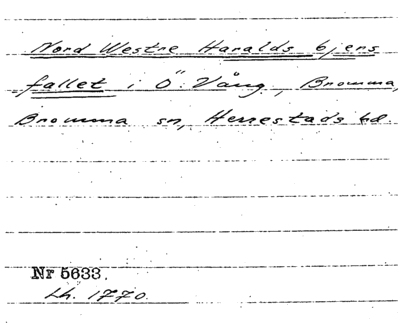 Nord Westre Haralds bjers
fallet i Ö. Vång, Bromma,
Bromma sn, Herrestads hd
Nr 5633.
Lh. 1770.